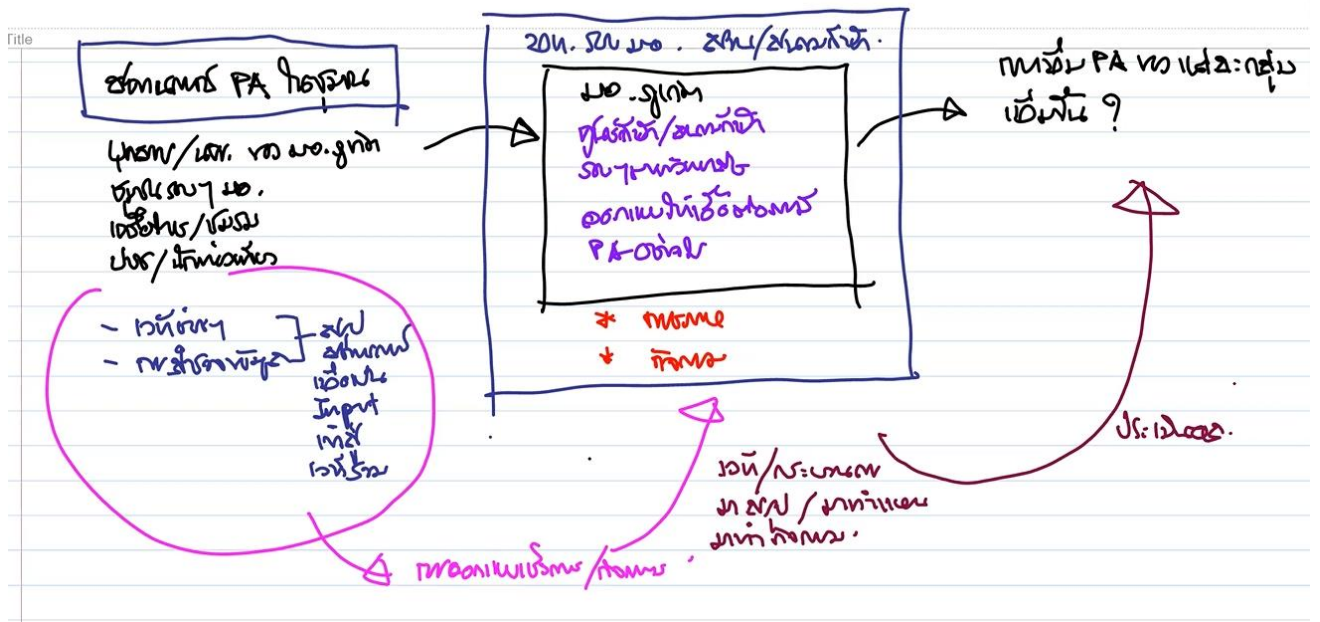 Title
ออกแบบ PA ในชุมชน
บุคลากร/นศ. ของ มอ.ภูเก็ต
ชุมชนรอบๆ มอ.
เครือข่าย/ชมรม
ปชช/นักท่องเที่ยว
- เวทีย่อยๆ
- การสำรวจข้อมูล
สรุป
สถานการณ์
เพื่อเป็น
Input
เข้าสู่
เวทีร่วม
รอบ มอ. สวน/สนามกีฬา.
มอ.ภูเก็ต
ศูนย์กีฬา/สนามกีฬา
รอบๆมหาวิทยาลัย
ออกแบบให้เอื้อต่อการมี
PA อย่างไร
* กายภาพ
* กิจกรรม
การเพิ่ม PA ของแต่ละกลุ่ม
เพิ่มขึ้น ?
ประเมินผล.
เวที/กระบวนการ
มาสรุป / มาทำแผน
มาทำกิจกรรม.
การออกแบบเชิงกายภาพ/กิจกรรม